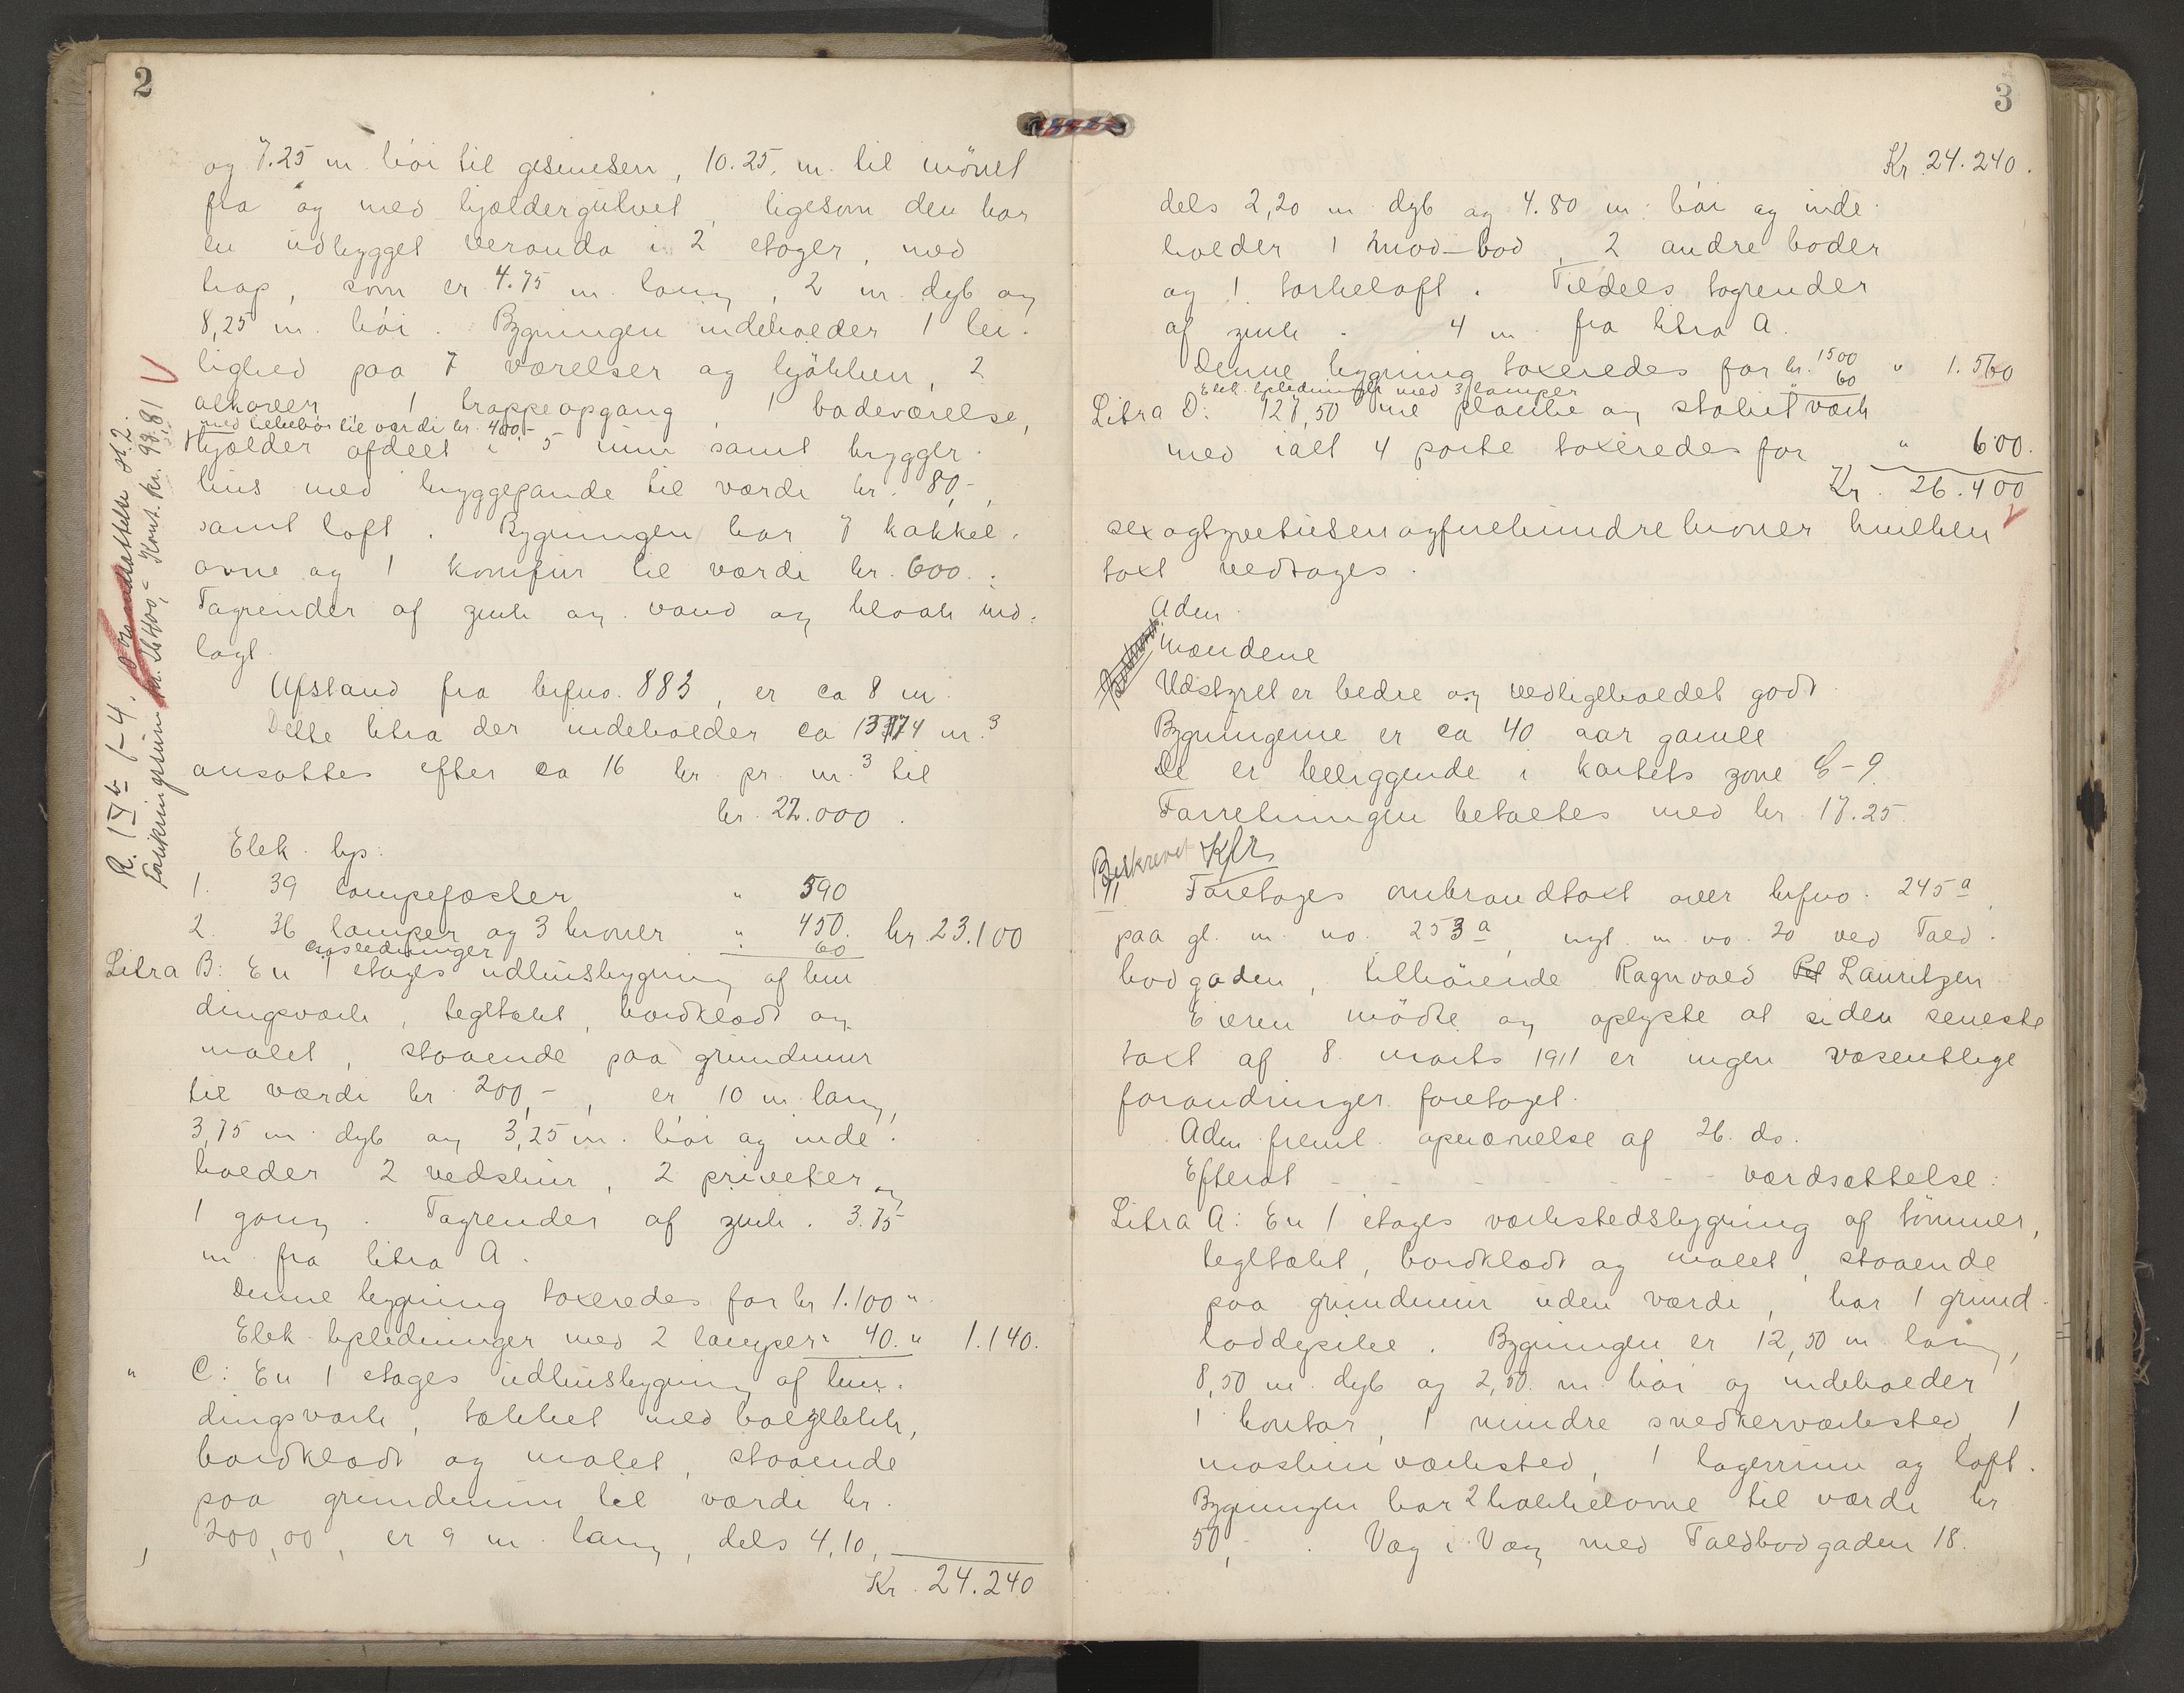 2
og 7.25 m. høi til gesimsen, 10.25. m. til mønet
fra og med kjældergulvet, ligesom den har
en udbygget veranda i 2 etager, med
trap, som er 4.75 m. lang, 2 m. dyb og
8,25 m. høi. Bygningen indeholder 1 lei-
lighed paa 7 værelser og kjøkken, 2
alkover, 1 trappeopgang, 1 badeværelse,
med tilbehør til værdi kr. 400,-
Kjælder afdelt i 5 rum samt brygger-
hus med bryggepande til værdi kr. 80,-,
samt loft. Bygningen har 7 kakkel-
ovne og 1 komfur til værdi kr. 600.
Tagrender af zink og vand og kloak ind-
lagt.
Afstand fra brfno. 883, er ca 8 m.
Dette litra der indeholder ca 1374 m.3
ansattes efter ca 16 kr. pr. m.3 til
kr. 22.000.
Elek. lys:
1. 39 lampefæster " 590
2. 36 lamper og 3 kroner " 450. kr. 23.100
gasledninger " 60
Litra B: En 1 etages udhusbygning af bin
dingsværk, tegltækt, bordklædt og
malet, staaende paa grundmur
til værdi kr 200,-, er 10 m. lang,
3,75 m. dyb og 3,25 m. høi og inde-
holder 2 vedskur, 2 priveter og
1 gang. Tagrender af zink. 3.75
m. fra litra A.
Denne bygning taxeredes for kr 1.100 "
Elek. lysledninger med 2 lamper " 40. " 1.140.
" C: En 1 etages udhusbygning af bin-
dingsværk, tækket med bølgeblik,
bordklædt og malet, staaende
paa grundmur til værdi kr.
200,00, er 9 m. lang, dels 4,10,
Kr. 24.240
R. IV b 1-4.
Kont. kr. 98,81
3
Kr. 24.240.
dels 2,20 m dyb og 4.80 m. høi og inde-
holder 1 mad-bod, 2 andre boder
og 1 tørkeloft. Tildels tagrender
af zink. 4 m. fra litra A.
Denne bygning taxeredes for kr. 1500 " 1.560
Elek. lysledninger med 3 lamper " 60
Litra D: 127,50 m planke og stakitværk
med ialt 4 porte taxeredes for " 600.
Kr. 26.400
sexogtyvetusenogfirehundre kroner hvilken
taxt vedtages.
Aden.
Mændene
Udstyret er bedre og vedligeholdet godt.
Bygningerne er ca 40 aar gamle.
De er beliggende i kartets zone C-9.
Forretningen betaltes med kr. 17.25.
Beskrevet
11. Foretages ombrandtaxt over brfno. 245 a
paa gl. m. no. 253 a, nyt. m. no. 20 ved Told-
bodgaden, tilhørende Ragnvald Pet Lauritzen
Eieren mødte og oplyste at siden seneste
taxt af 8. marts 1911 er ingen væsentlige
forandringer foretaget.
Aden freml. opnævnelse af 26. ds.
Efterat - - - - - - - værdsættelse:
Litra A: En 1 etages værkstedsbygning af tømmer,
tegltækt, bordklædt og malet, staaende
paa grundmur uden værdi, har 1 grund-
loddepibe. Bygningen er 12,50 m. lang,
8,50 m. dyb og 2,50. m. høi og indeholder
1 kontor, 1 mindre snedkerværksted, 1
maskinværksted, 1 lagerrum og loft.
Bygningen har 2 kakkelovne til værdi kr
50,-. Væg i Væg med Toldbodgaden 18.